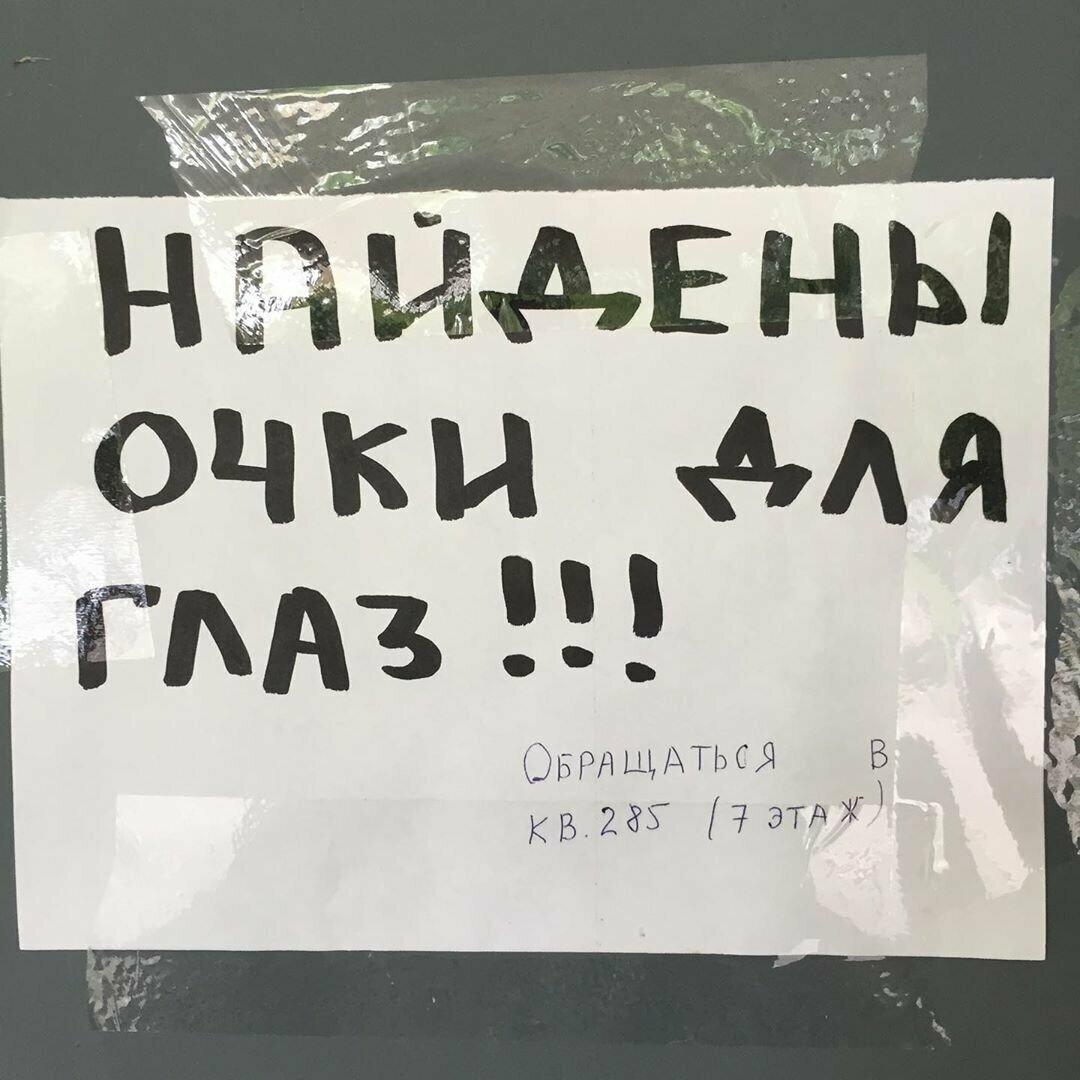 НАЙДЕНЫ
ОЧКИ ДЛЯ
ГЛАЗ!!!
ОБРАЩАТЬСЯ В
КВ. 285 (7 ЭТАЖ)